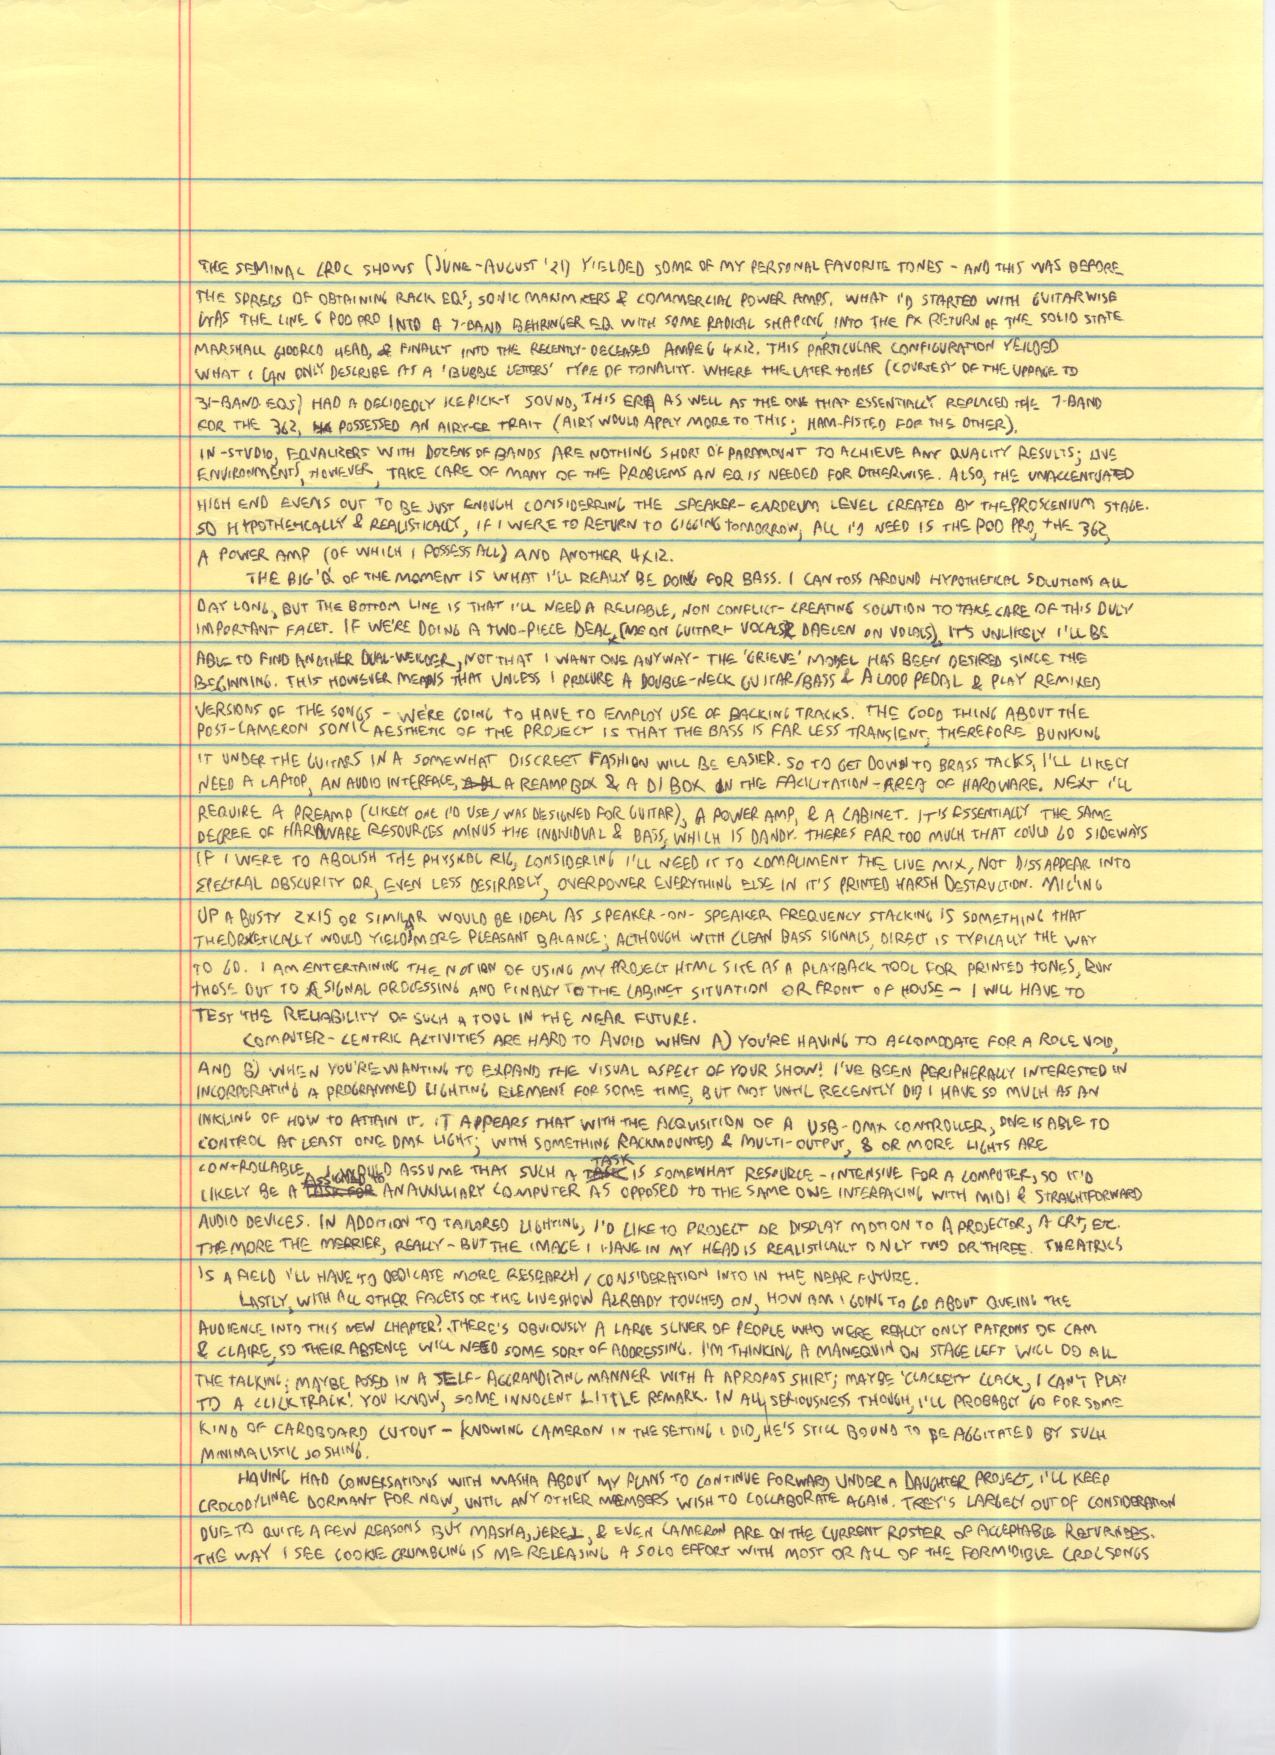 THE SEMINAL CROC SHOWS (JUNE-AUGUST '21) YIELDED SOME OF MY PERSONAL FAVORITE TONES - AND THIS WAS BEFORE
THE SPREES OF OBTAINING RACK EQS, SONIC MAXIMIZERS & COMMERCIAL POWER AMPS. WHAT I'D STARTED WITH GUITARWISE
WAS THE LINE 6 POD PRO INTO A 7-BAND BEHRINGER EQ WITH SOME RADICAL SHAPING, INTO THE FX RETURN OF THE SOLID STATE
MARSHALL G100RCD HEAD, & FINALLY INTO THE RECENTLY-DECEASED AMPEG 4X12. THIS PARTICULAR CONFIGURATION YEILDED
WHAT I CAN ONLY DESCRIBE AS A 'BUBBLE LETTERS' TYPE OF TONALITY. WHERE THE LATER TONES (COURTESY OF THE UPPAGE TO
31-BAND EQS) HAD A DECIDEDLY ICEPICK-Y SOUND, THIS ERA AS WELL AS THE ONE THAT ESSENTIALLY REPLACED THE 7-BAND
FOR THE 362, POSSESSED AN AIRY-ER TRAIT (AIRY WOULD APPLY MORE TO THIS; HAM-FISTED FOR THE OTHER).
IN-STUDIO, EQUALIZERS WITH DOZENS OF BANDS ARE NOTHING SHORT OF PARAMOUNT TO ACHIEVE ANY QUALITY RESULTS; LIVE
ENVIRONMENTS, HOWEVER, TAKE CARE OF MANY OF THE PROBLEMS AN EQ IS NEEDED FOR OTHERWISE. ALSO, THE UNACCENTUATED
HIGH END EVENS OUT TO BE JUST ENOUGH CONSIDERRING THE SPEAKER-EARDRUM LEVEL CREATED BY THE PROSCENIUM STAGE.
SO HYPOTHEMICALLY & REALISTICALLY, IF I WERE TO RETURN TO GIGGING TOMORROW, ALL I'D NEED IS THE POD PRO, THE 362,
A POWER AMP (OF WHICH I POSSESS ALL) AND ANOTHER 4X12.
THE BIG 'Q' OF THE MOMENT IS WHAT I'LL REALLY BE DOING FOR BASS. I CAN TOSS AROUND HYPOTHETICAL SOLUTIONS ALL
DAY LONG, BUT THE BOTTOM LINE IS THAT I'LL NEED A RELIABLE, NON CONFLICT-CREATING SOLUTION TO TAKE CARE OF THIS DULY
IMPORTANT FACET. IF WE'RE DOING A TWO-PIECE DEAL, (ME ON GUITAR + VOCALS & DAELEN ON VOCALS), IT'S UNLIKELY I'LL BE
ABLE TO FIND ANOTHER DUAL-WEILDER, NOT THAT I WANT ONE ANYWAY - THE 'GRIEVE' MODEL HAS BEEN DESIRED SINCE THE
BEGINNING. THIS HOWEVER MEANS THAT UNLESS I PROCURE A DOUBLE-NECK GUITAR/BASS & A LOOP PEDAL & PLAY REMIXED
VERSIONS OF THE SONGS - WE'RE GOING TO HAVE TO EMPLOY USE OF BACKING TRACKS. THE GOOD THING ABOUT THE
POST-CAMERON SONIC AESTHETIC OF THE PROJECT IS THAT THE BASS IS FAR LESS TRANSIENT, THEREFORE BUNKING
IT UNDER THE GUITARS IN A SOMEWHAT DISCREET FASHION WILL BE EASIER. SO TO GET DOWN TO BRASS TACKS, I'LL LIKELY
NEED A LAPTOP, AN AUDIO INTERFACE, A REAMP BOX & A DI BOX IN THE FACILITATION-AREA OF HARDWARE. NEXT I'LL
REQUIRE A PREAMP (LIKELY ONE I'D USE/WAS DESIGNED FOR GUITAR), A POWER AMP, & A CABINET. IT IS ESSENTIALLY THE SAME
DEGREE OF HARDWARE RESOURCES MINUS THE INDIVIDUAL & BASS, WHICH IS DANDY. THERES FAR TOO MUCH THAT COULD GO SIDEWAYS
IF I WERE TO ABOLISH THE PHYSICAL RIG, CONSIDERING I'LL NEED IT TO COMPLIMENT THE LIVE MIX, NOT DISSAPPEAR INTO
SPECTRAL OBSCURITY OR, EVEN LESS DESIRABLY, OVERPOWER EVERYTHING ELSE IN IT'S PRINTED HARSH DESTRUCTION. MIC'ING
UP A BUSTY 2X15 OR SIMILAR WOULD BE IDEAL AS SPEAKER-ON-SPEAKER FREQUENCY STACKING IS SOMETHING THAT
THEORETICALLY WOULD YIELD MORE PLEASANT BALANCE; ALTHOUGH WITH CLEAN BASS SIGNALS, DIRECT IS TYPICALLY THE WAY
TO GO. I AM ENTERTAINING THE NOTION OF USING MY PROJECT HTML SITE AS A PLAYBACK TOOL FOR PRINTED TONES, RUN
THOSE OUT TO A SIGNAL PROCESSING AND FINALLY TO THE CABINET SITUATION OR FRONT OF HOUSE - I WILL HAVE TO
TEST THE RELIABILITY OF SUCH A TOOL IN THE NEAR FUTURE.
COMPUTER-CENTRIC ACTIVITIES ARE HARD TO AVOID WHEN A) YOU'RE HAVING TO ACCOMODATE FOR A ROLE VOID,
AND B) WHEN YOU'RE WANTING TO EXPAND THE VISUAL ASPECT OF YOUR SHOW! I'VE BEEN PERIPHERALLY INTERESTED IN
INCORPORATING A PROGRAMMED LIGHTING ELEMENT FOR SOME TIME, BUT NOT UNTIL RECENTLY DID I HAVE SO MUCH AS AN
INKLING OF HOW TO ATTAIN IT. IT APPEARS THAT WITH THE ACQUISITION OF A USB-DMX CONTROLLER, ONE IS ABLE TO
CONTROL AT LEAST ONE DMX LIGHT; WITH SOMETHING RACKMOUNTED & MULTI-OUTPUT, 8 OR MORE LIGHTS ARE
CONTROLLABLE. I WOULD ASSUME THAT SUCH A TASK IS SOMEWHAT RESOURCE-INTENSIVE FOR A COMPUTER, SO IT'D
LIKELY BE A ASSIGNED TO AN AUXILLIARY COMPUTER AS OPPOSED TO THE SAME ONE INTERFACING WITH MIDI & STRAIGHTFORWARD
AUDIO DEVICES. IN ADDITION TO TAILORED LIGHTING, I'D LIKE TO PROJECT OR DISPLAY MOTION TO A PROJECTOR, A CRT, ETC.
THE MORE THE MERRIER, REALLY - BUT THE IMAGE I HAVE IN MY HEAD IS REALISTICALLY ONLY TWO OR THREE. THEATRICS
IS A FIELD I'LL HAVE TO DEDICATE MORE RESEARCH/CONSIDERATION INTO IN THE NEAR FUTURE.
LASTLY, WITH ALL OTHER FACETS OF THE LIVESHOW ALREADY TOUCHED ON, HOW AM I GOING TO GO ABOUT QUEING THE
AUDIENCE INTO THIS NEW CHAPTER? THERE'S OBVIOUSLY A LARGE SLIVER OF PEOPLE WHO WERE REALLY ONLY PATRONS OF CAM
& CLAIRE, SO THEIR ABSENCE WILL NEED SOME SORT OF ADDRESSING. I'M THINKING A MANEQUIN ON STAGE LEFT WILL DO ALL
THE TALKING; MAYBE POSED IN A SELF-AGGRANDIZING MANNER WITH A APROPOS SHIRT; MAYBE 'CLACKETY CLACK, I CAN'T PLAY
TO A CLICK TRACK'. YOU KNOW, SOME INNOCENT LITTLE REMARK. IN ALL SERIOUSNESS THOUGH, I'LL PROBABLY GO FOR SOME
KIND OF CARDBOARD CUTOUT - KNOWING CAMERON IN THE SETTING I DID, HE'S STILL BOUND TO BE AGGITATED BY SUCH
MINIMALISTIC JOSHING.
HAVING HAD CONVERSATIONS WITH MASHA ABOUT MY PLANS TO CONTINUE FORWARD UNDER A DAUGHTER PROJECT, I'LL KEEP
CROCODYLINAE DORMANT FOR NOW, UNTIL ANY OTHER MEMBERS WISH TO COLLABORATE AGAIN. TREY'S LARGELY OUT OF CONSIDERATION
DUE TO QUITE A FEW REASONS BUT MASHA, JEREL, & EVEN CAMERON ARE ON THE CURRENT ROSTER OF ACCEPTABLE RETURNEES.
THE WAY I SEE COOKIE CRUMBLING IS ME RELEASING A SOLO EFFORT WITH MOST OR ALL OF THE FORMIDIBLE CROC SONGS